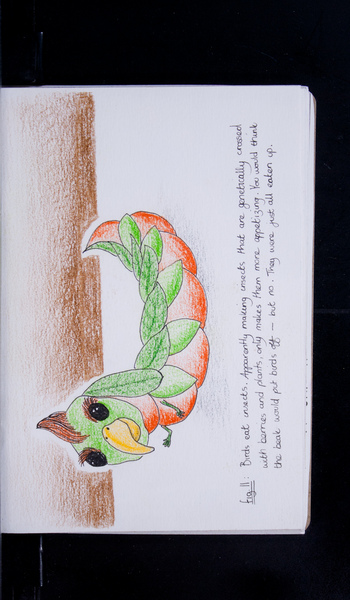 Fig 11: Birds eat insects. Apparently making insects that are genetically crossed
with berries and plants, only makes them more appetizing. You would think
the beak would put birds off — but no. They were just all eaten up.